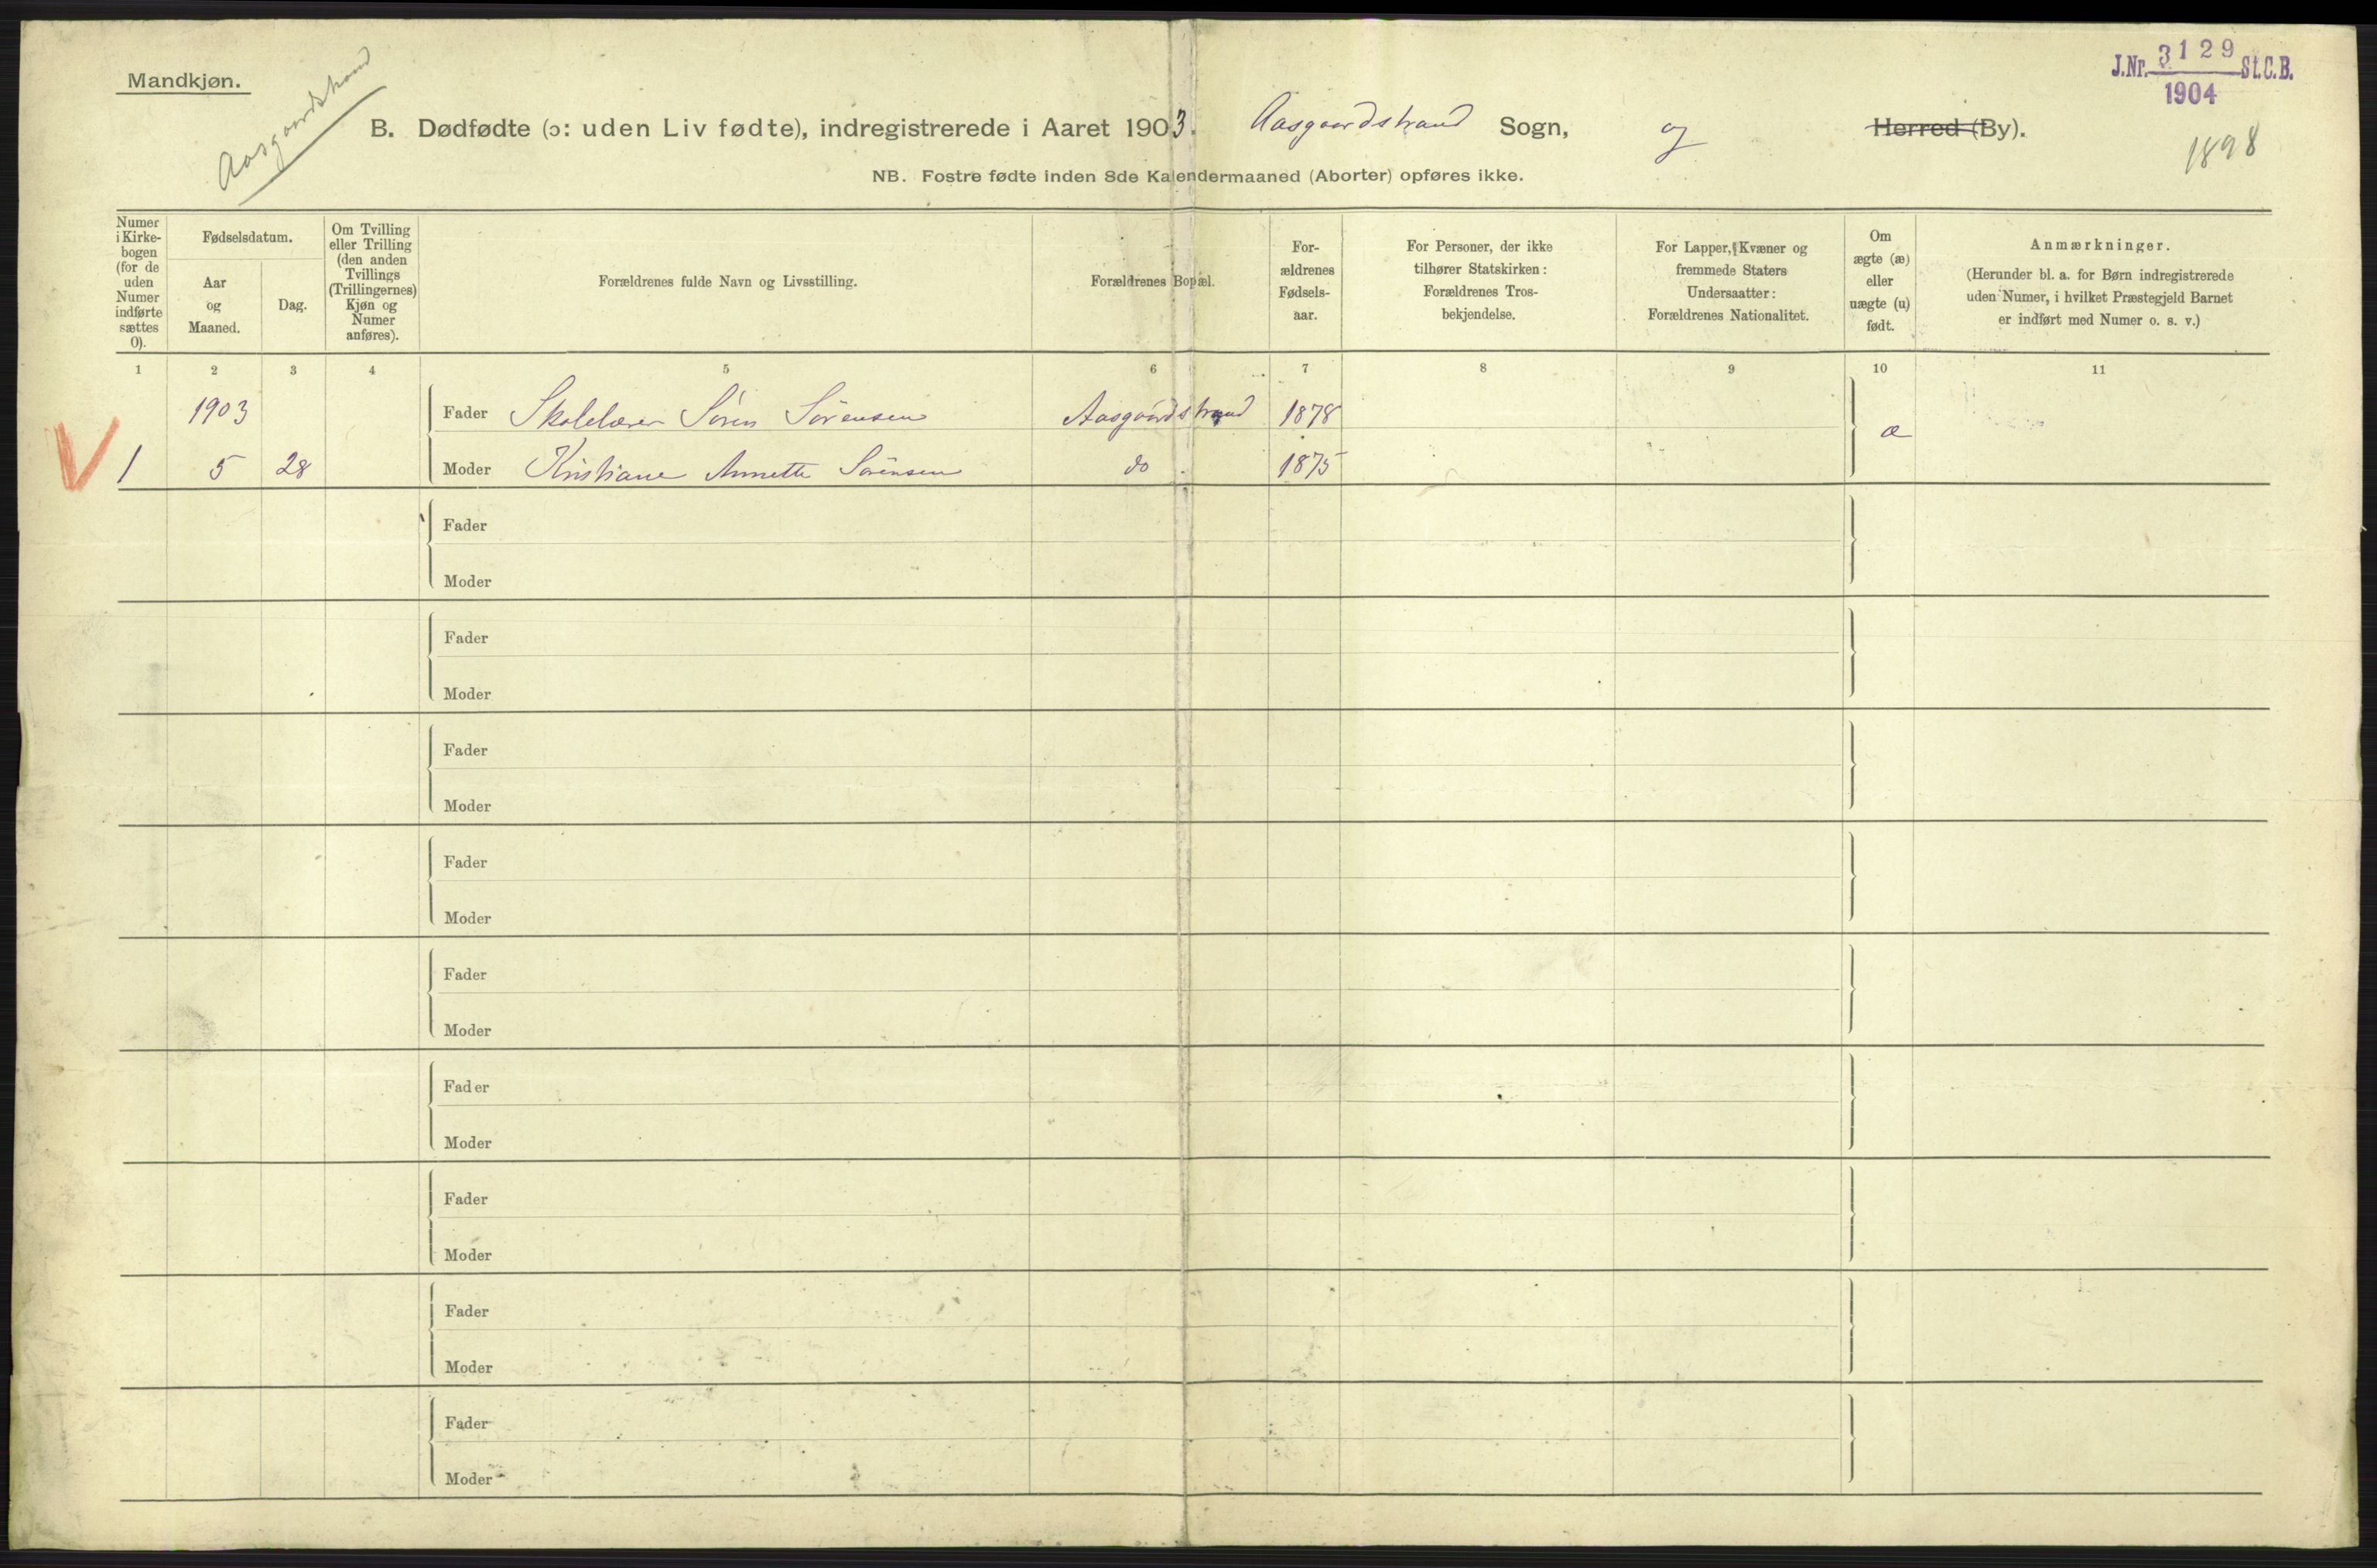 Mandkjøn.
Aasgaardstrand
J.Nr. 3129 St.C.B.
1904
1898
B. Dødfødte (ɔ: uden Liv fødte), indregistrerede i Aaret 1903. Aasgaardstrand Sogn, og Herred (By).
NB. Fostre fødte inden 8de Kalendermaaned (Aborter) opføres ikke.
Numer i Kirke-bogen (for de uden Numer indførte sættes 0).
Fødselsdatum.
Aar og Maaned.
Dag.
Om Tvilling eller Trilling (den anden Tvillings (Trillingernes) Kjøn og Numer anføres).
Forældrenes fulde Navn og Livsstilling.
Forældrenes Bopæl.
For-ældrenes Fødsels-aar.
For Personer, der ikke tilhører Statskirken: Forældrenes Tros-bekjendelse.
For Lapper, Kvæner og fremmede Staters Undersaatter: Forældrenes Nationalitet.
Om ægte (æ) eller uægte (u) født.
Anmærkninger.
(Herunder bl. a. for Børn indregistrerede uden Numer, i hvilket Præstegjeld Barnet er indført med Numer o. s. v.)
1 2 3 4 5 6 7 8 9 10 11
1903 Fader Skolelærer Søren Sørensen Aasgaardstrand 1878
æ
1 5 28 Moder Kristiane Annette Sørensen do 1875
Fader
Moder
Fader
Moder
Fader
Moder
Fader
Moder
Fader
Moder
Fader
Moder
Fader
Moder
Fader
Moder
Fader
Moder